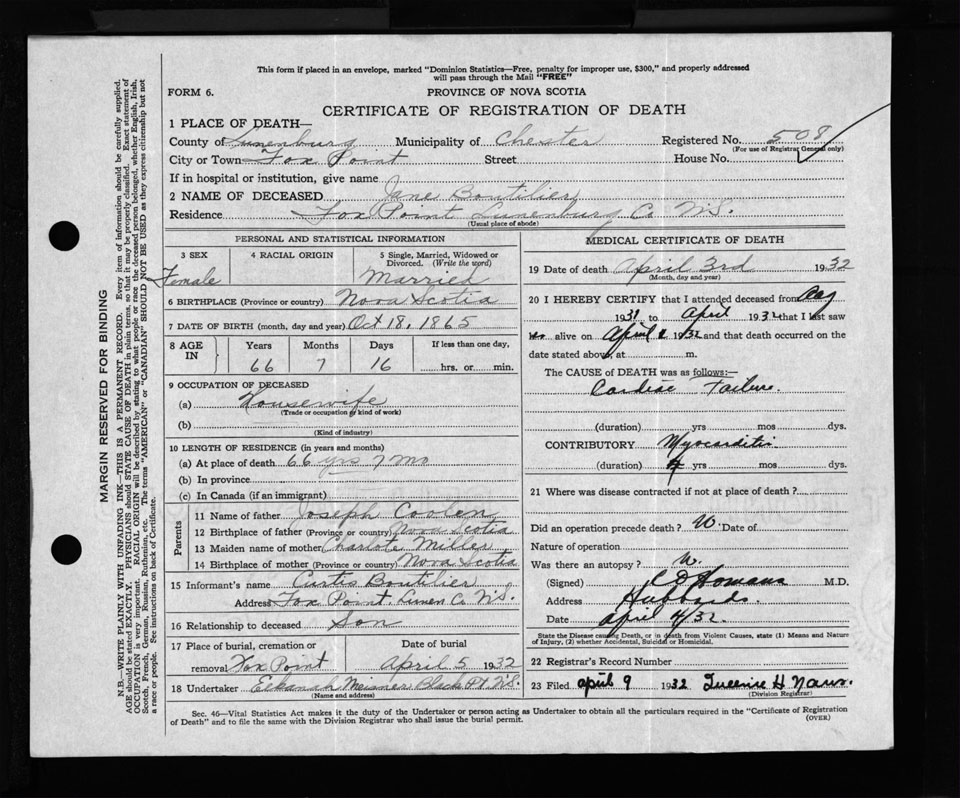 This form if placed in an envelope, marked "Dominion Statistics—Free, penalty for improper use, $300," and properly addressed
will pass through the Mail "FREE"
FORM 6.
PROVINCE OF NOVA SCOTIA
CERTIFICATE OF REGISTRATION OF DEATH
1 PLACE OF DEATH—
County of Lunenburg Municipality of Chester Registered No. 508
(For use of Registrar General only)
City or Town Fox Point Street House No.
If in hospital or institution, give name
2 NAME OF DECEASED Jane Boutilier
Residence Fox Point Lunenburg Co N.S.
(Usual place of abode)
PERSONAL AND STATISTICAL INFORMATION
3 SEX 4 RACIAL ORIGIN 5 Single, Married, Widowed or
Divorced. (Write the word)
Female Married
6 BIRTHPLACE (Province or country) Nova Scotia
7 DATE OF BIRTH (month, day and year) Oct 18, 1865
8 AGE IN Years Months Days If less than one day,
66 7 16 hrs. or min.
9 OCCUPATION OF DECEASED
(a) Housewife
(Trade or occupation or kind of work)
(b)
(Kind of industry)
10 LENGTH OF RESIDENCE (in years and months)
(a) At place of death 66 yrs 7 mo
(b) In province
(c) In Canada (if an immigrant)
Parents
11 Name of father Joseph Coolen
12 Birthplace of father (Province or country) Nova Scotia
13 Maiden name of mother Charlote Miller
14 Birthplace of mother (Province or country) Nova Scotia
15 Informant's name Curtis Boutilier
Address Fox Point. Lunen Co N.S.
16 Relationship to deceased Son
17 Place of burial, cremation or Date of burial
removal Fox Point April 5 1932
18 Undertaker Elkanah Meisner Black Pt. N.S.
(Name and address)
MEDICAL CERTIFICATE OF DEATH
19 Date of death April 3rd 1932
(Month, day and year)
20 I HEREBY CERTIFY that I attended deceased from Aug
1931 to April 1932 that I last saw
alive on April 2 1932 and that death occurred on
date stated above, at m.
The CAUSE of DEATH was as follows:—
Cardiac Failure.
(duration) yrs mos dys.
CONTRIBUTORY Myocarditis
(duration) yrs mos dys.
21 Where was disease contracted if not at place of death?
Did an operation precede death? No Date of
Nature of operation
Was there an autopsy?
(Signed) C D Homans M.D.
Address Hubbards.
Date April 4/32.
State the Disease causing Death, or in death from Violent Causes, state (1) Means and Nature
of Injury, (2) whether Accidental, Suicidal or Homicidal.
22 Registrar's Record Number
23 Filed april 9 1932
(Division Registrar)
Sec. 46—Vital Statistics Act makes it the duty of the Undertaker or person acting as Undertaker to obtain all the particulars required in the "Certificate of Registration
of Death" and to file the same with the Division Registrar who shall issue the burial permit.
(OVER)
MARGIN RESERVED FOR BINDING
N.B.—WRITE PLAINLY WITH UNFADING INK—THIS IS A PERMANENT RECORD. Every item of information should be carefully supplied.
AGE should be stated EXACTLY. PHYSICIANS should STATE CAUSE OF DEATH in plain terms, so that it may be properly classified. Exact statement of
OCCUPATION is very important. RACIAL ORIGIN will be described by stating to what people or race the deceased person belonged, whether English, Irish,
Scotch, French, German, Russian, Ruthenian, etc. The terms "AMERICAN" or "CANADIAN" SHOULD NOT BE USED as they express citizenship but not
a race or people. See instructions on back of Certificate.